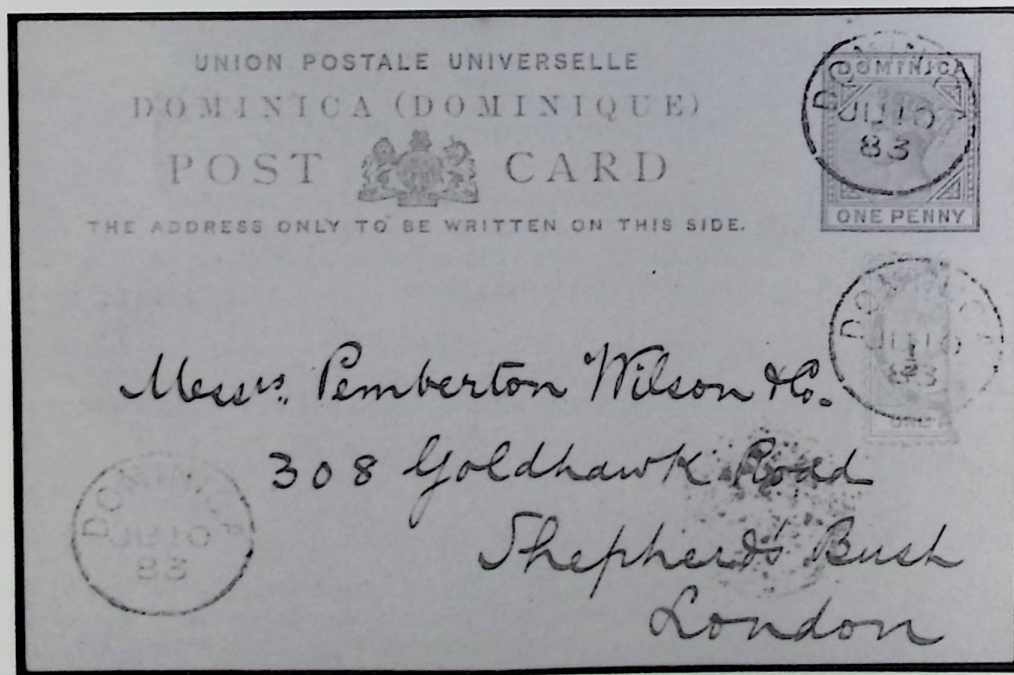 UNION POSTALE UNIVERSELLE
DOMINICA (DOMINIQUE)
POST CARD
THE ADDRESS ONLY TO BE WRITTEN ON THIS SIDE.
DOMINICA
ONE PENNY
DOMINICA
JU 10
83
DOMINICA
JU 10
83
ONE P
Messrs. Pemberton Wilson & Co.
308 Goldhawk Road
Shepherds Bush
London
DOMINICA
JU 10
83